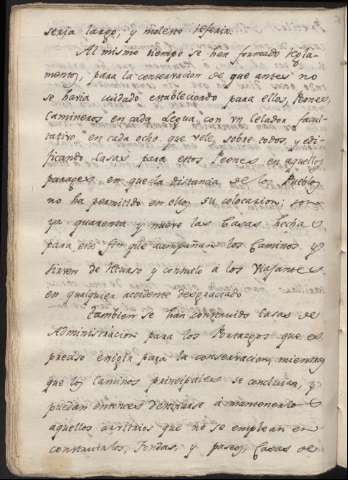 seria largo, y molesto referir.
Al mismo tiempo se ha formado Regla-
mento, para la conservacion de que antes no
se havia cuidado estableciendo para ellos, Peones,
Camineros en cada Legua, con un Celador facul-
tativo en cada ocho que vele, sobre todos, y edi-
ficando Casas para estos Peones en aquellos
parages en que la distancia de los Pueblos
no ha permitido en ellos su colocacion; son
ya quarenta y nueve las Casas hechas
para este fin que acompañan los Caminos y
sirven de Recurso y consuelo á los Viajantes
en qualquier accidente desgraciado
tambien se han construido Casas de
Administracion para los Portazgos que es
preciso exigir para la conservacion, mientras
que los Caminos principales se concluian, y
puedan entonces destinarse á mantenerlos
aquellos arvitrios que no se emplean en
construirlos, Fondas, y paseos, Casas de